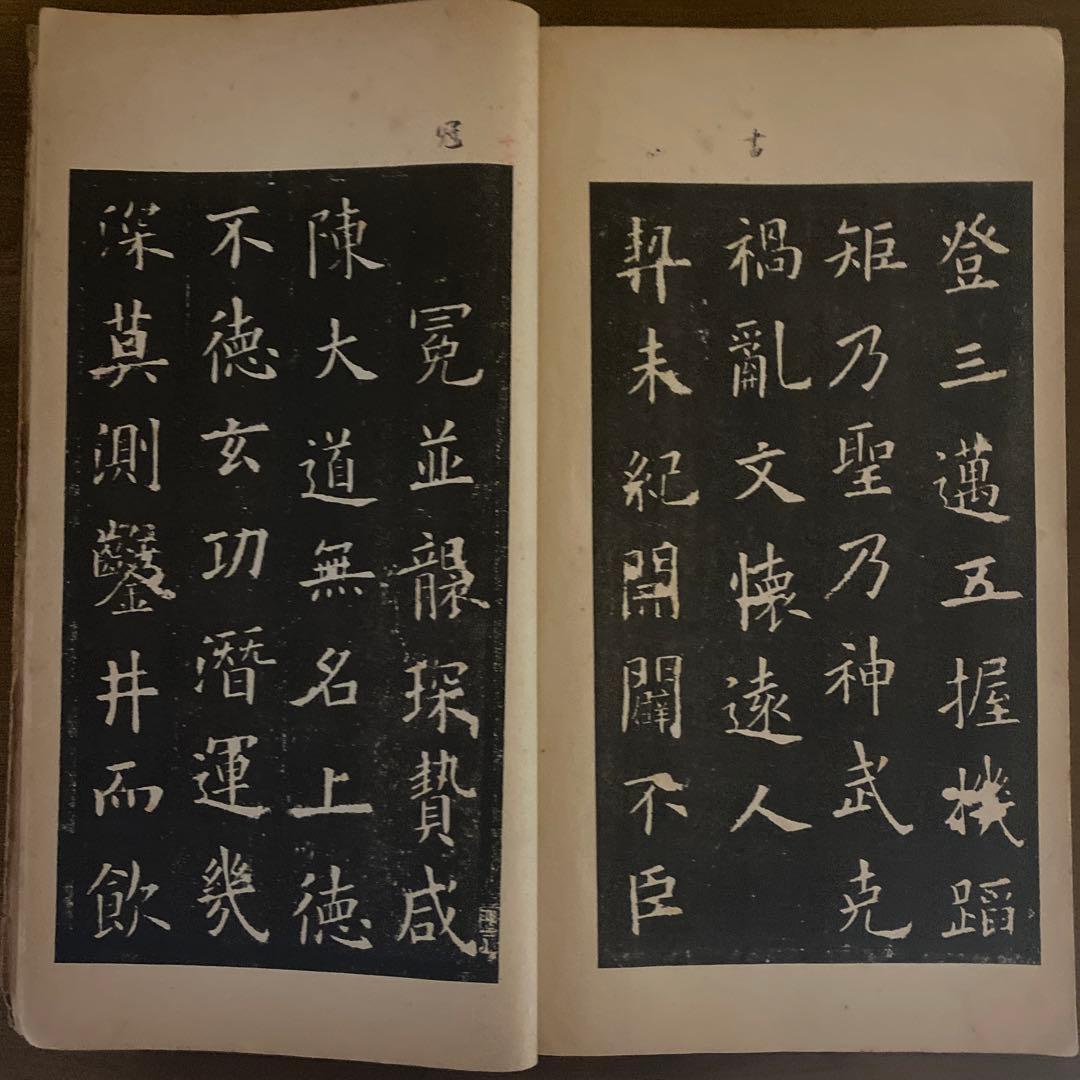 書
登三邁五握機蹈
矩乃聖乃神武克
禍亂文懷遠人
契未紀開闢不臣
冠
冕並襲琛贄咸
陳大道無名上德
不德玄功潛運幾
深莫測鑿井而飲